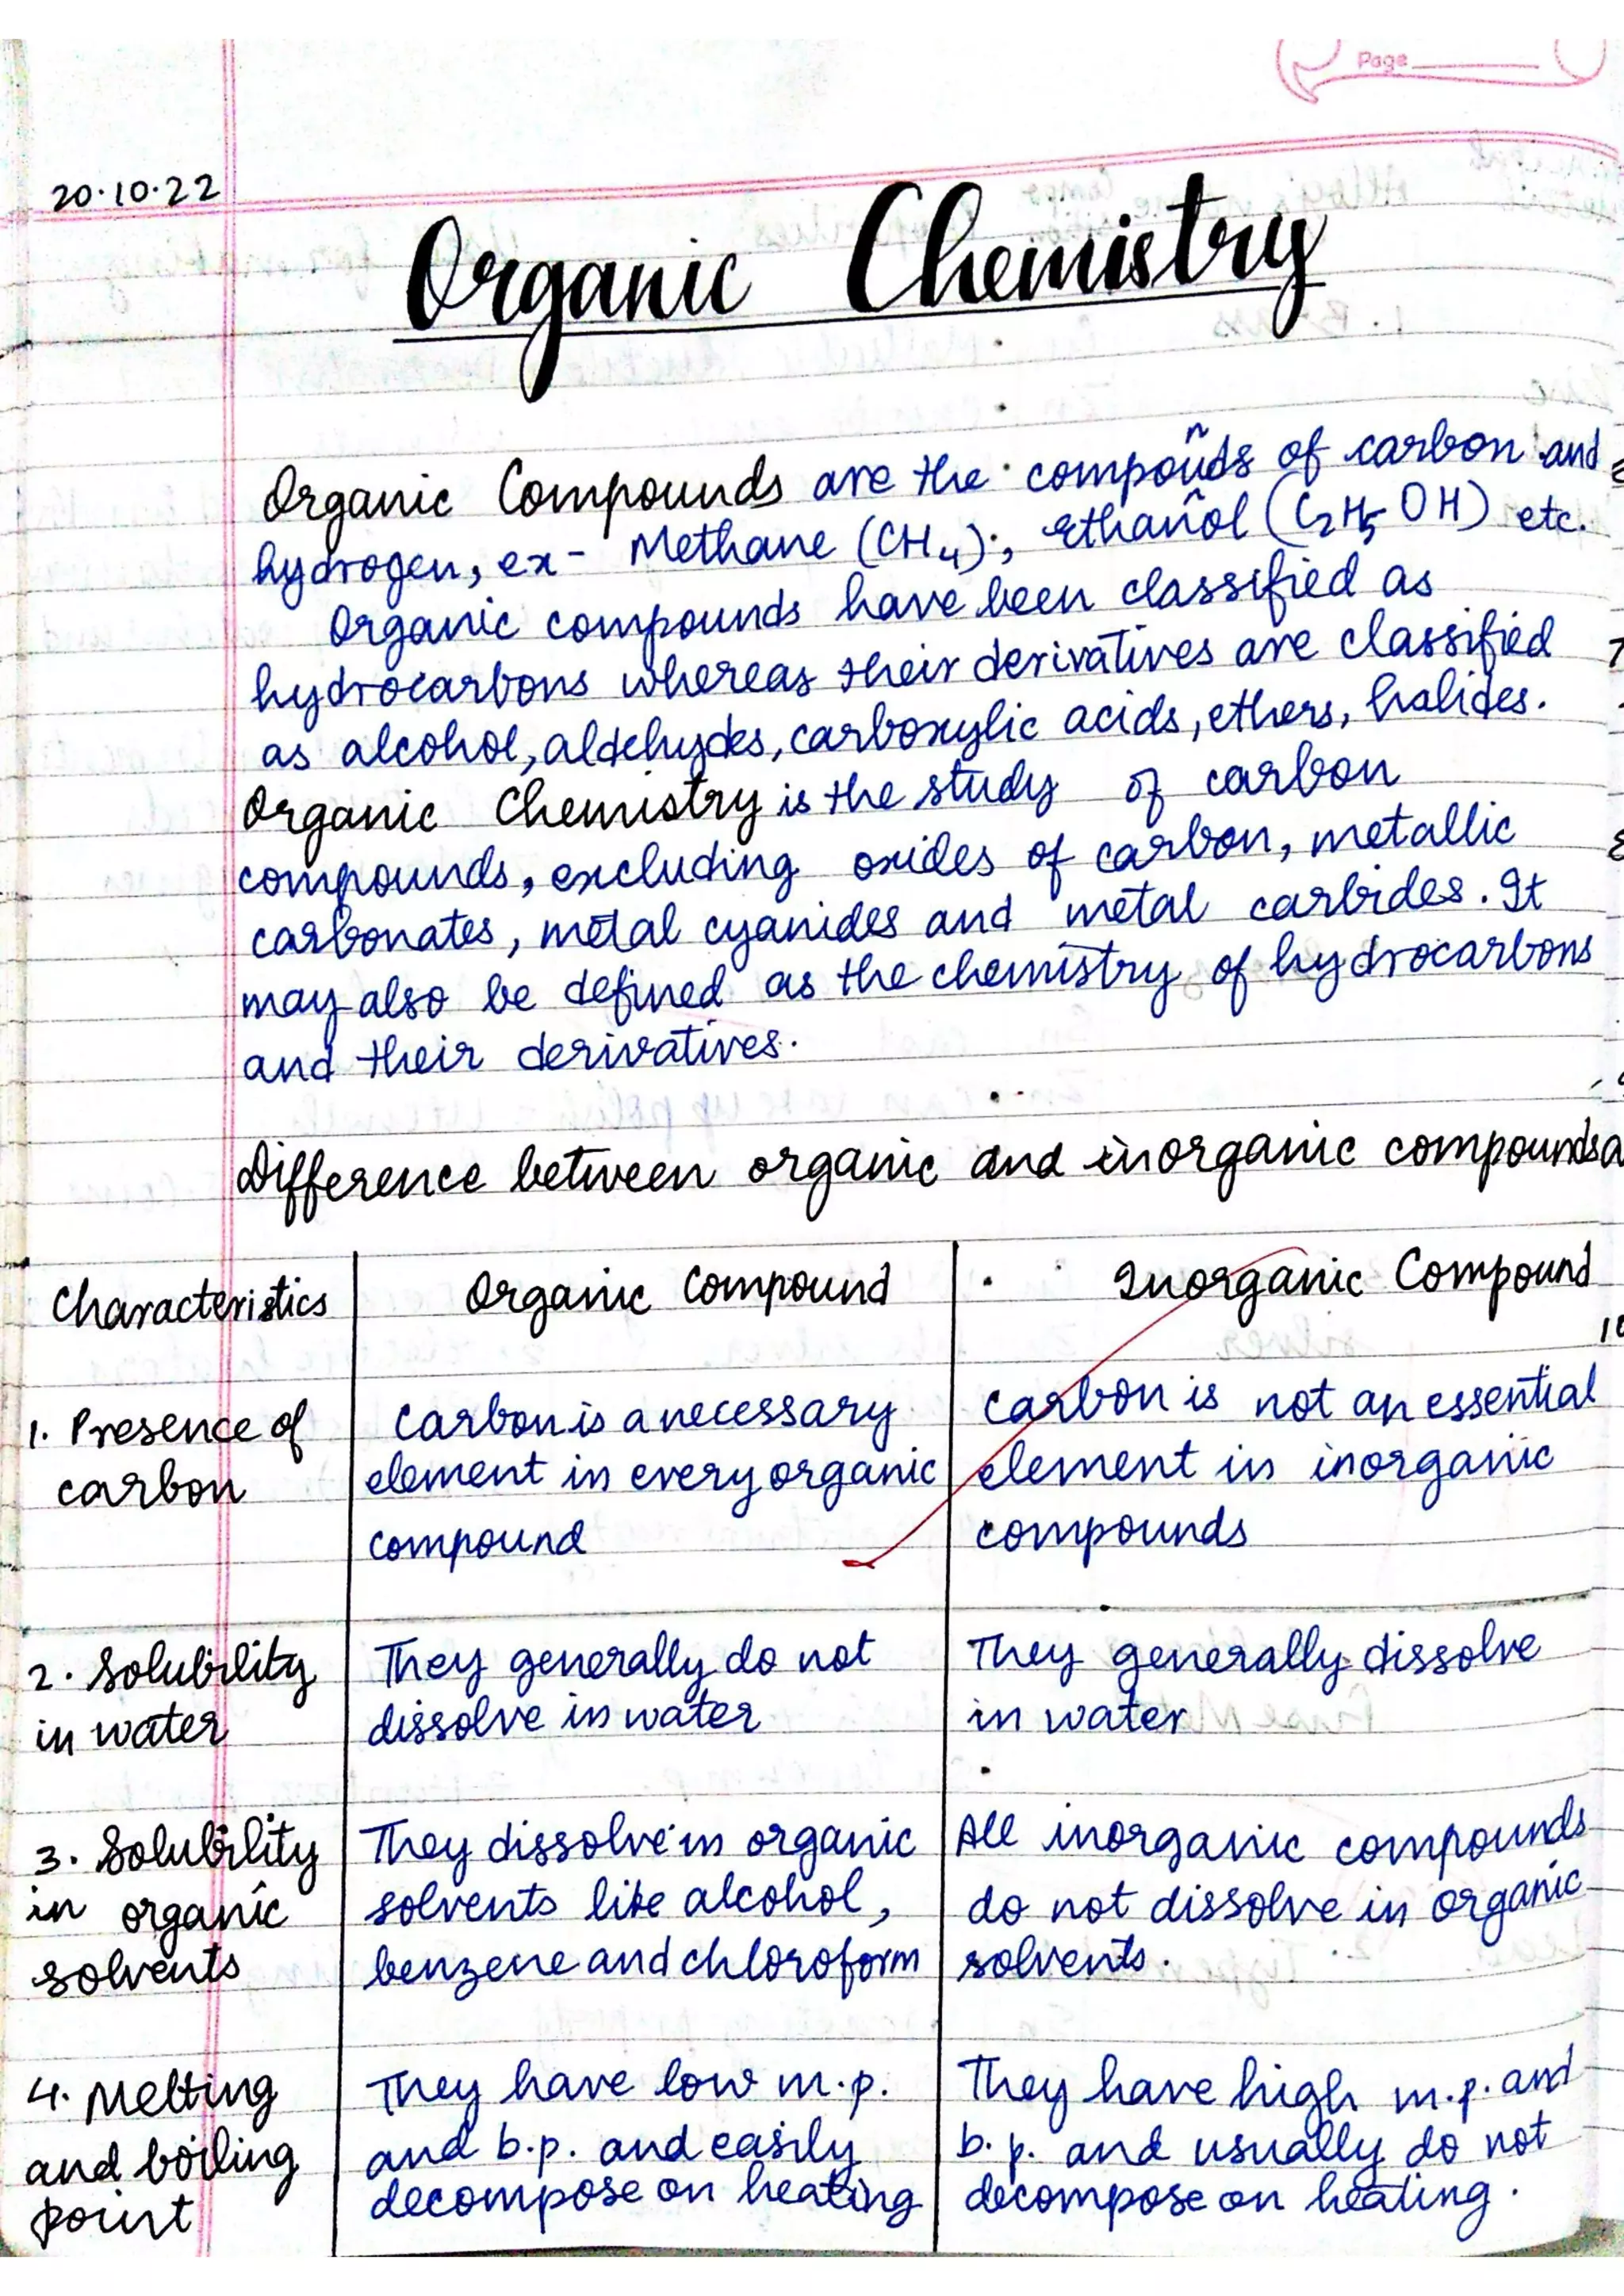 Page
20.10.22
Organic Chemistry
Organic Compounds are the compoūds of carbon and
hydrogen, ex- Methane (CH₄), Ethanol (C₂H₅OH) etc.
Organic compounds have been classified as
hydrocarbons whereas their derivatives are classified
as alcohol, aldehydes, carboxylic acids, ethers, halides.
Organic Chemistry is the study of carbon
compounds, excluding oxides of carbon, metallic
carbonates, metal cyanides and metal carbides. It
may also be defined as the chemistry of hydrocarbons
and their derivatives.
Difference between organic and inorganic compounds
Characteristics Organic Compound Inorganic Compound
1. Presence of Carbon is a necessary Carbon is not an essential
carbon element in every organic element in inorganic
compound compounds
2. Solubility They generally do not They generally dissolve
in water dissolve in water in water
3. Solubility They dissolve in organic All inorganic compounds
in organic solvents like alcohol, do not dissolve in organic
solvents benzene and chloroform solvents.
4. Melting They have low m.p. They have high m.p. and
and boiling and b.p. and easily b.p. and usually do not
point decompose on heating decompose on heating.